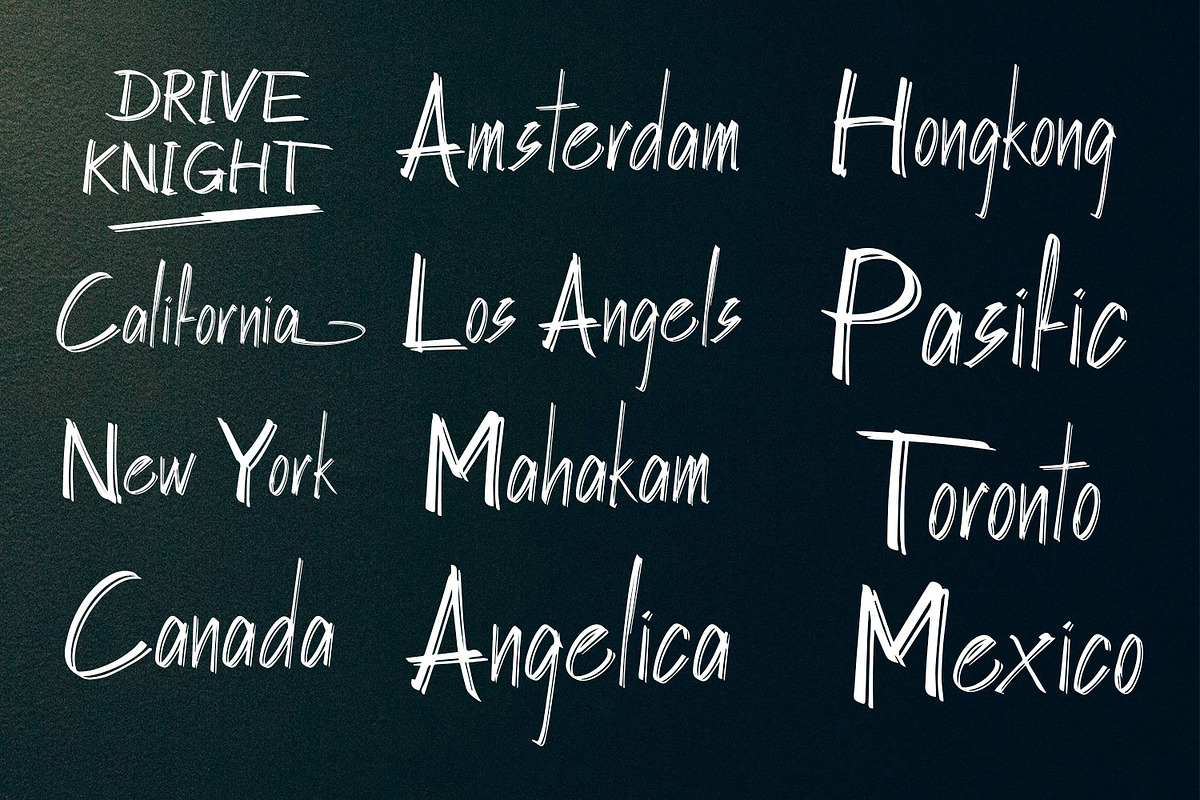 DRIVE
KNIGHT
Amsterdam
Hongkong
California
Los Angels
Pasific
New York
Mahakam
Toronto
Canada
Angelica
Mexico